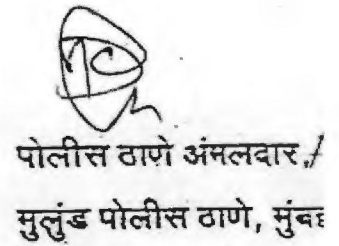 पोलीस ठाणे अंमलदार,
मुलुंड पोलीस ठाणे,